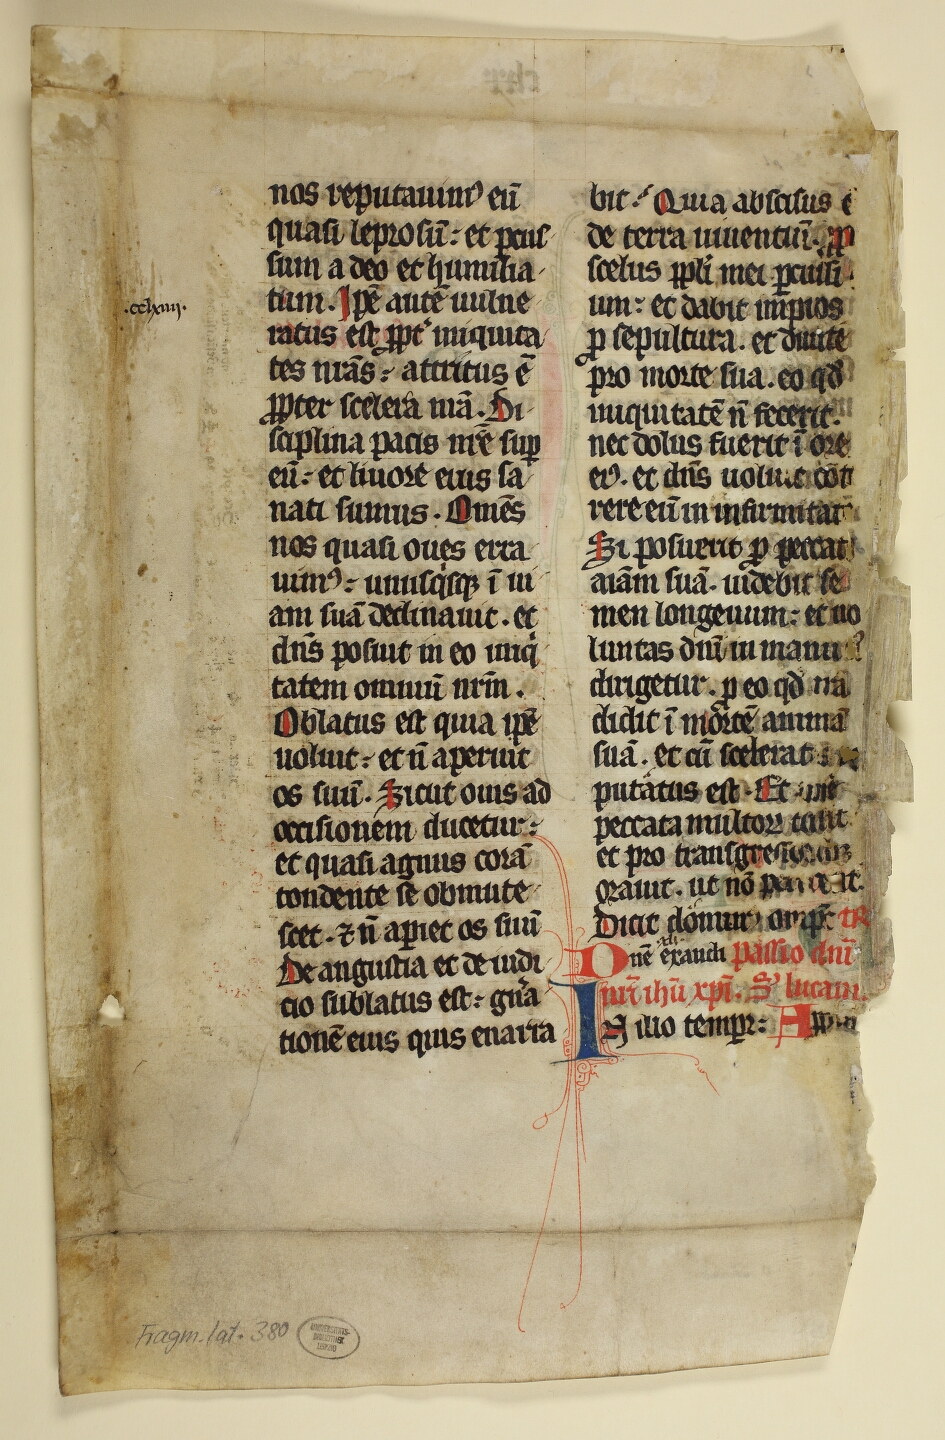 nos reputauim⁹ eū
quasi leprosū : et pcus
sum a deo et humilia
tum . Ipē autē uulne
.cclxiiij.
ratus est ꝓpt̾ iniquita
tes nr̄as : attritus ē
ꝓpter scelera nr̄a . Di
sciplina pacis nr̄e suꝑ
eū : et liuore eius sa
nati sumus . Omēs
nos quasi oues erra
uim⁹ : unusqͥsqꝫ ī ui
am suā declinauit . et
dn̄s posuit in eo iniqͥ
tatem omniū nrm̄ .
Oblatus est quia ipē
uoluit : et n̄ aperuit
os suū . Sicut ouis ad
occisionem ducetur :
et quasi agnus corā
tondente se obmute
scet . ⁊ n̄ apiet os suū
De angustia et de iudi
cio sublatus est : gn̄a
tionē eius quis enarra
bit : Quia abscisus ē
de terra uiuentiū . ꝓp
scelus ppli mei ꝑcussi
um : et dabit impios
ꝓ sepultura . et diuite
pro morte sua . eo qd̄
iniquitatē n̄ fecerit .
nec dolus fuerit ī ore
ei⁹ . et dn̄s uoluit cōte
rere eū in infirmitat
Si posuerit ꝓ peccat
aīam suā . uidebit se
men longeuum : et uo
luntas dn̄i in manu
dirigetur . ꝓ eo qd̄ tra
didit ī mortē animā
suā . et cū scelerat
putatus est . Et
peccata multoꝝ tulit
et pro transgressoribꝫ
orauit . ut nō ꝑirent
Dicit TR
Dn̄e exaudi Passio dn̄i
nr̄i ihū xp̄i . S' lucam
IN illo tempr̄ : Appn
Fragm. lat. 380
UNIVERSITÄTS-
BIBLIOTHEK
LEIPZIG